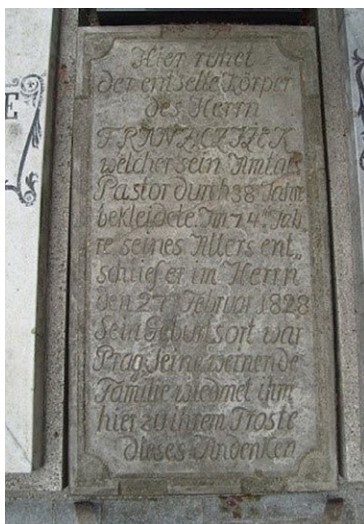 Hier ruhet
der entseelte Körper
des Herrn
welcher sein Amt als
Pastor durch 38 Jahre
bekleidete. Im 74. Jah
re seines Alters ent„
schlief er im Herrn
den 27. Februar 1828
Sein Geburtsort war
Prag. Seine weinende
Familie wiedmet ihm
hier zu ihrem Troste
dieses Andenken